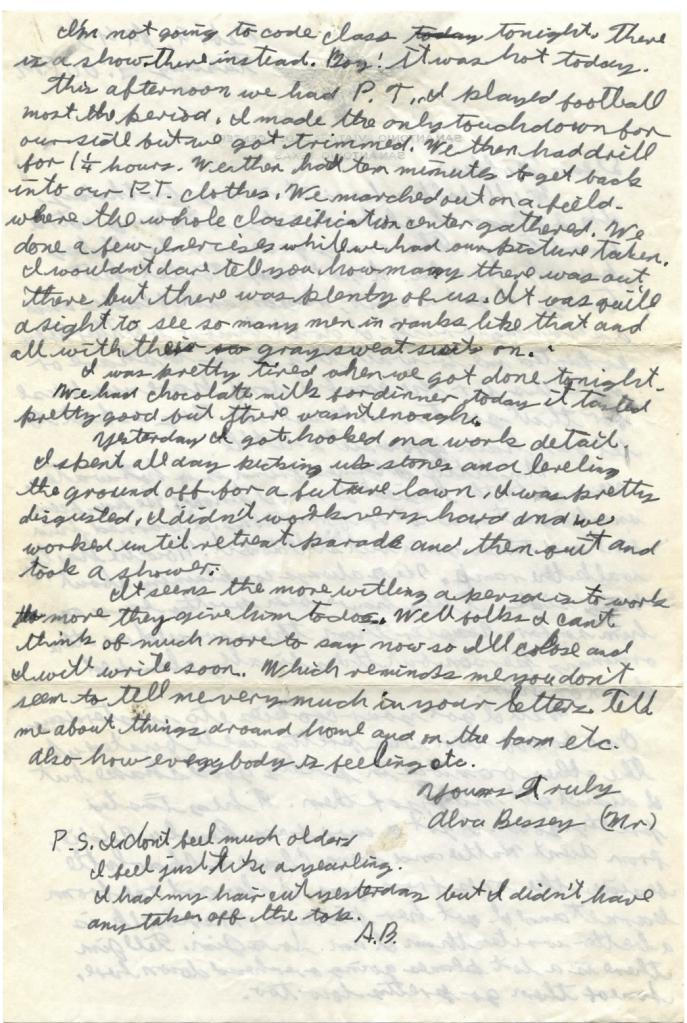 I'm not going to code class today tonight. There
is a show there instead. Boy! it was hot today.
This afternoon we had P. T., I played football
most the period. I made the only touchdown for
our side but we got trimmed. We then had drill
for 1¼ hours. We then had ten minutes to get back
into our P.T. clothes. We marched out on a field
where the whole classification center gathered. We
done a few exercises while we had our picture taken.
I wouldn't dare tell you how many there was out
there but there was plenty of us. It was quite
a sight to see so many men in ranks like that and
all with their so gray sweat suits on.
I was pretty tired when we got done tonight.
We had chocolate milk for dinner today it tasted
pretty good but there wasn't enough.
Yesterday I got hooked on a work detail.
I spent all day picking up stones and leveling
the ground off for a future lawn. I was pretty
disgusted, I didn't work very hard and we
worked until retreat parade and then quit and
took a shower.
It seems the more willing a person is to work
the more they give him to do. Well folks I can't
think of much more to say now so I'll close and
I will write soon. Which reminds me you don't
seem to tell me very much in your letters. Tell
me about things around home and on the farm etc.
Also how everybody is feeling etc.
Yours Truly
Alva Bessey (Mr)
P.S. I don't feel much older
I feel just like a yearling.
I had my hair cut yesterday but I didn't have
any taken off the top.
A.B.